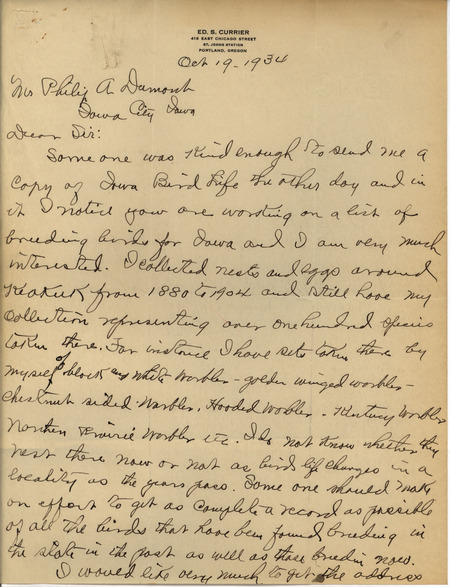 ED. S. CURRIER
416 EAST CHICAGO STREET
ST. JOHNS STATION
PORTLAND, OREGON
Oct 19-1934
Mr Philip A Dumont
Iowa City Iowa
Dear Sir:
Some one was kind enough to send me a
copy of Iowa Bird Life the other day and in
it I notice your are working on a list of
breeding birds for Iowa and I am very much
interested. I collected nests and eggs around
Keokuk from 1880 to 1904 and still have my
collection representing over one hundred species
taken there. For instance I have sets taken there by
myself of black and white Warbler - golden winged warbler -
Chestnut sided Warbler, Hooded Warbler - Kentucky Warbler
Northern Prairie Warbler etc. I do not know whether they
nest there now or not as bird life changes in a
locality as the years pass. Some one should make
an effort to get as complete a record as possible
of all the birds that have been found breeding in
the state in the past as well as those breeding now.
I would like very much to get the address